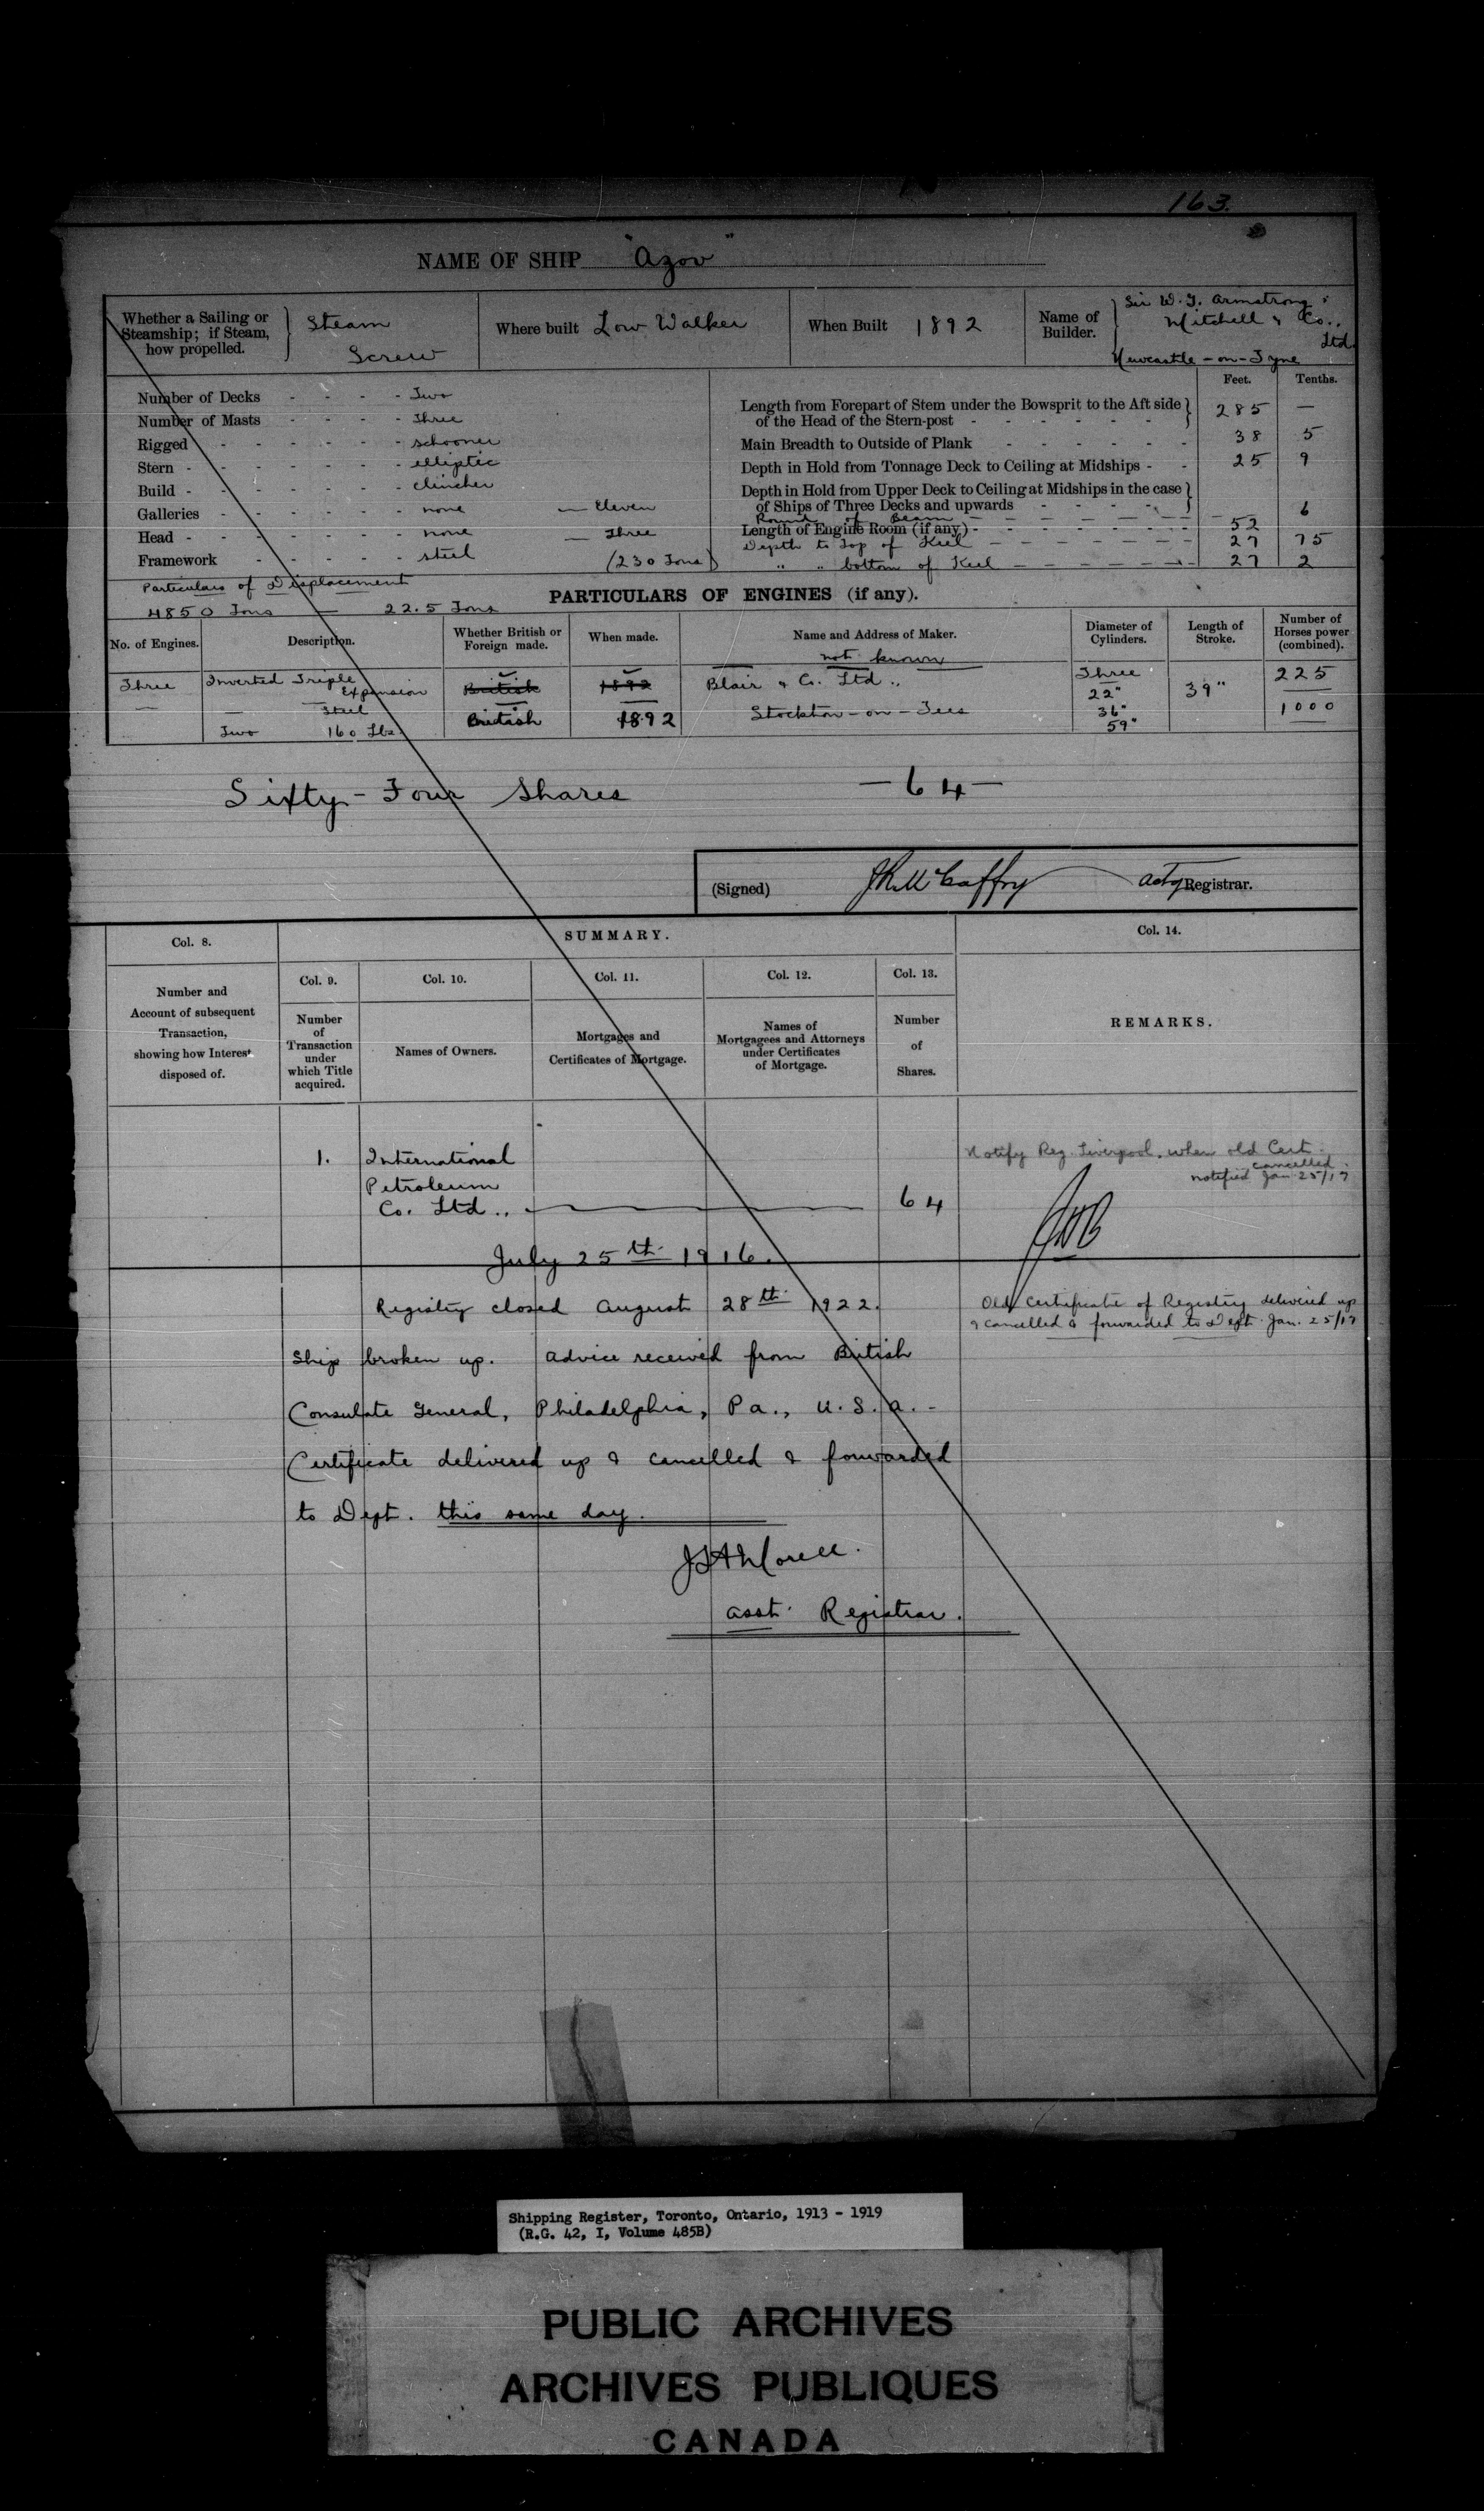 163.
NAME OF SHIP "Azov"
Whether a Sailing or Steamship; if Steam, how propelled. Steam Screw
Where built Low Walker
When Built 1892
Name of Builder. Sir W. G. Armstrong, Mitchell & Co., Ltd. Newcastle-on-Tyne
Feet. Tenths.
Number of Decks - - - - Two
Number of Masts - - - - Three
Rigged - - - - - - schooner
Stern - - - - - - elliptic
Build - - - - - - clincher
Galleries - - - - - - none — Eleven
Head - - - - - - none — Three
Framework - - - - - steel (230 Tons)
Length from Forepart of Stem under the Bowsprit to the Aft side of the Head of the Stern-post - - - - - - 285 —
Main Breadth to Outside of Plank - - - - - - 38 5
Depth in Hold from Tonnage Deck to Ceiling at Midships - - 25 9
Depth in Hold from Upper Deck to Ceiling at Midships in the case of Ships of Three Decks and upwards - - - -
Round of Beam — — — — — 6
Length of Engine Room (if any) - - - - - - - 52
Depth to Top of Keel — — — — — 27 75
" " bottom of Keel — — — — — 27 2
Particulars of Displacement
4850 Tons — 22.5 Tons
PARTICULARS OF ENGINES (if any).
No. of Engines. Description. Whether British or Foreign made. When made. Name and Address of Maker. Diameter of Cylinders. Length of Stroke. Number of Horses power (combined).
not known
Three Inverted Triple Expansion British 1892 Blair & Co. Ltd., Three 22" 39" 225
— Steel British 1892 Stockton-on-Tees 36" 1000
Two 160 Lbs. 59"
Sixty-Four Shares — 64 —
(Signed) J.R. McCaffry actg Registrar.
Col. 8. SUMMARY. Col. 14.
Col. 9. Col. 10. Col. 11. Col. 12. Col. 13.
Number and Account of subsequent Transaction, showing how Interest disposed of.
Number of Transaction under which Title acquired.
Names of Owners.
Mortgages and Certificates of Mortgage.
Names of Mortgagees and Attorneys under Certificates of Mortgage.
Number of Shares.
REMARKS.
1. International
Petroleum
Co. Ltd., 64
Notify Reg. Liverpool, when old Cert.
cancelled.
notified Jan 25/17
July 25th 1916.
Registry closed August 28th 1922.
Old Certificate of Registry delivered up
& cancelled & forwarded to Dept. Jan. 25/17
Ship broken up. Advice received from British
Consulate General, Philadelphia, Pa., U.S.A. -
Certificate delivered up & cancelled & forwarded
to Dept. this same day.
asst. Registrar.
Shipping Register, Toronto, Ontario, 1913 - 1919
(R.G. 42, I, Volume 485B)
PUBLIC ARCHIVES
ARCHIVES PUBLIQUES
CANADA